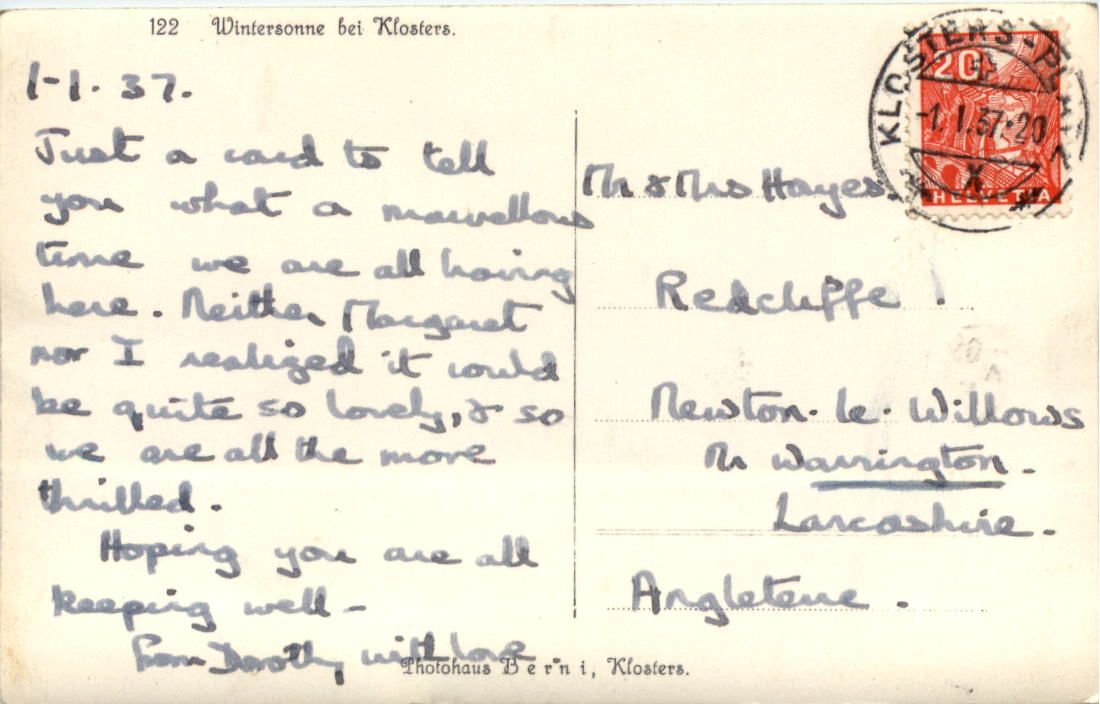 122 Wintersonne bei Klosters.
1-1.37.
Just a card to tell
you what a marvellous
time we are all having
here. Neither Margaret
nor I realized it would
be quite so lovely, & so
we are all the more
thrilled.
Hoping you are all
keeping well -
from Dorothy with love
Photohaus Berni, Klosters.
KLOSTERS-PLATZ
-1.I.37-20
X
20
HELVETIA
Mr & Mrs Hayes
Redcliffe.
Newton-le-Willows
Nr Warrington.
Lancashire.
Angleterre.